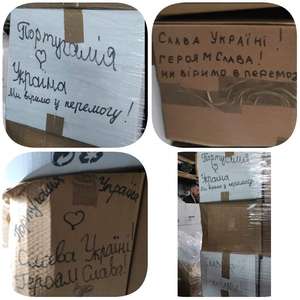 Португалія
♡
Україна
Ми віримо у перемогу!
Слава Україні!
Героям Слава!
Ми віримо в перемо
Португалія
Україна
♡
Слава Україні!
Героям Слава!
Португалія
♡
Україна
Ми віримо у перемогу